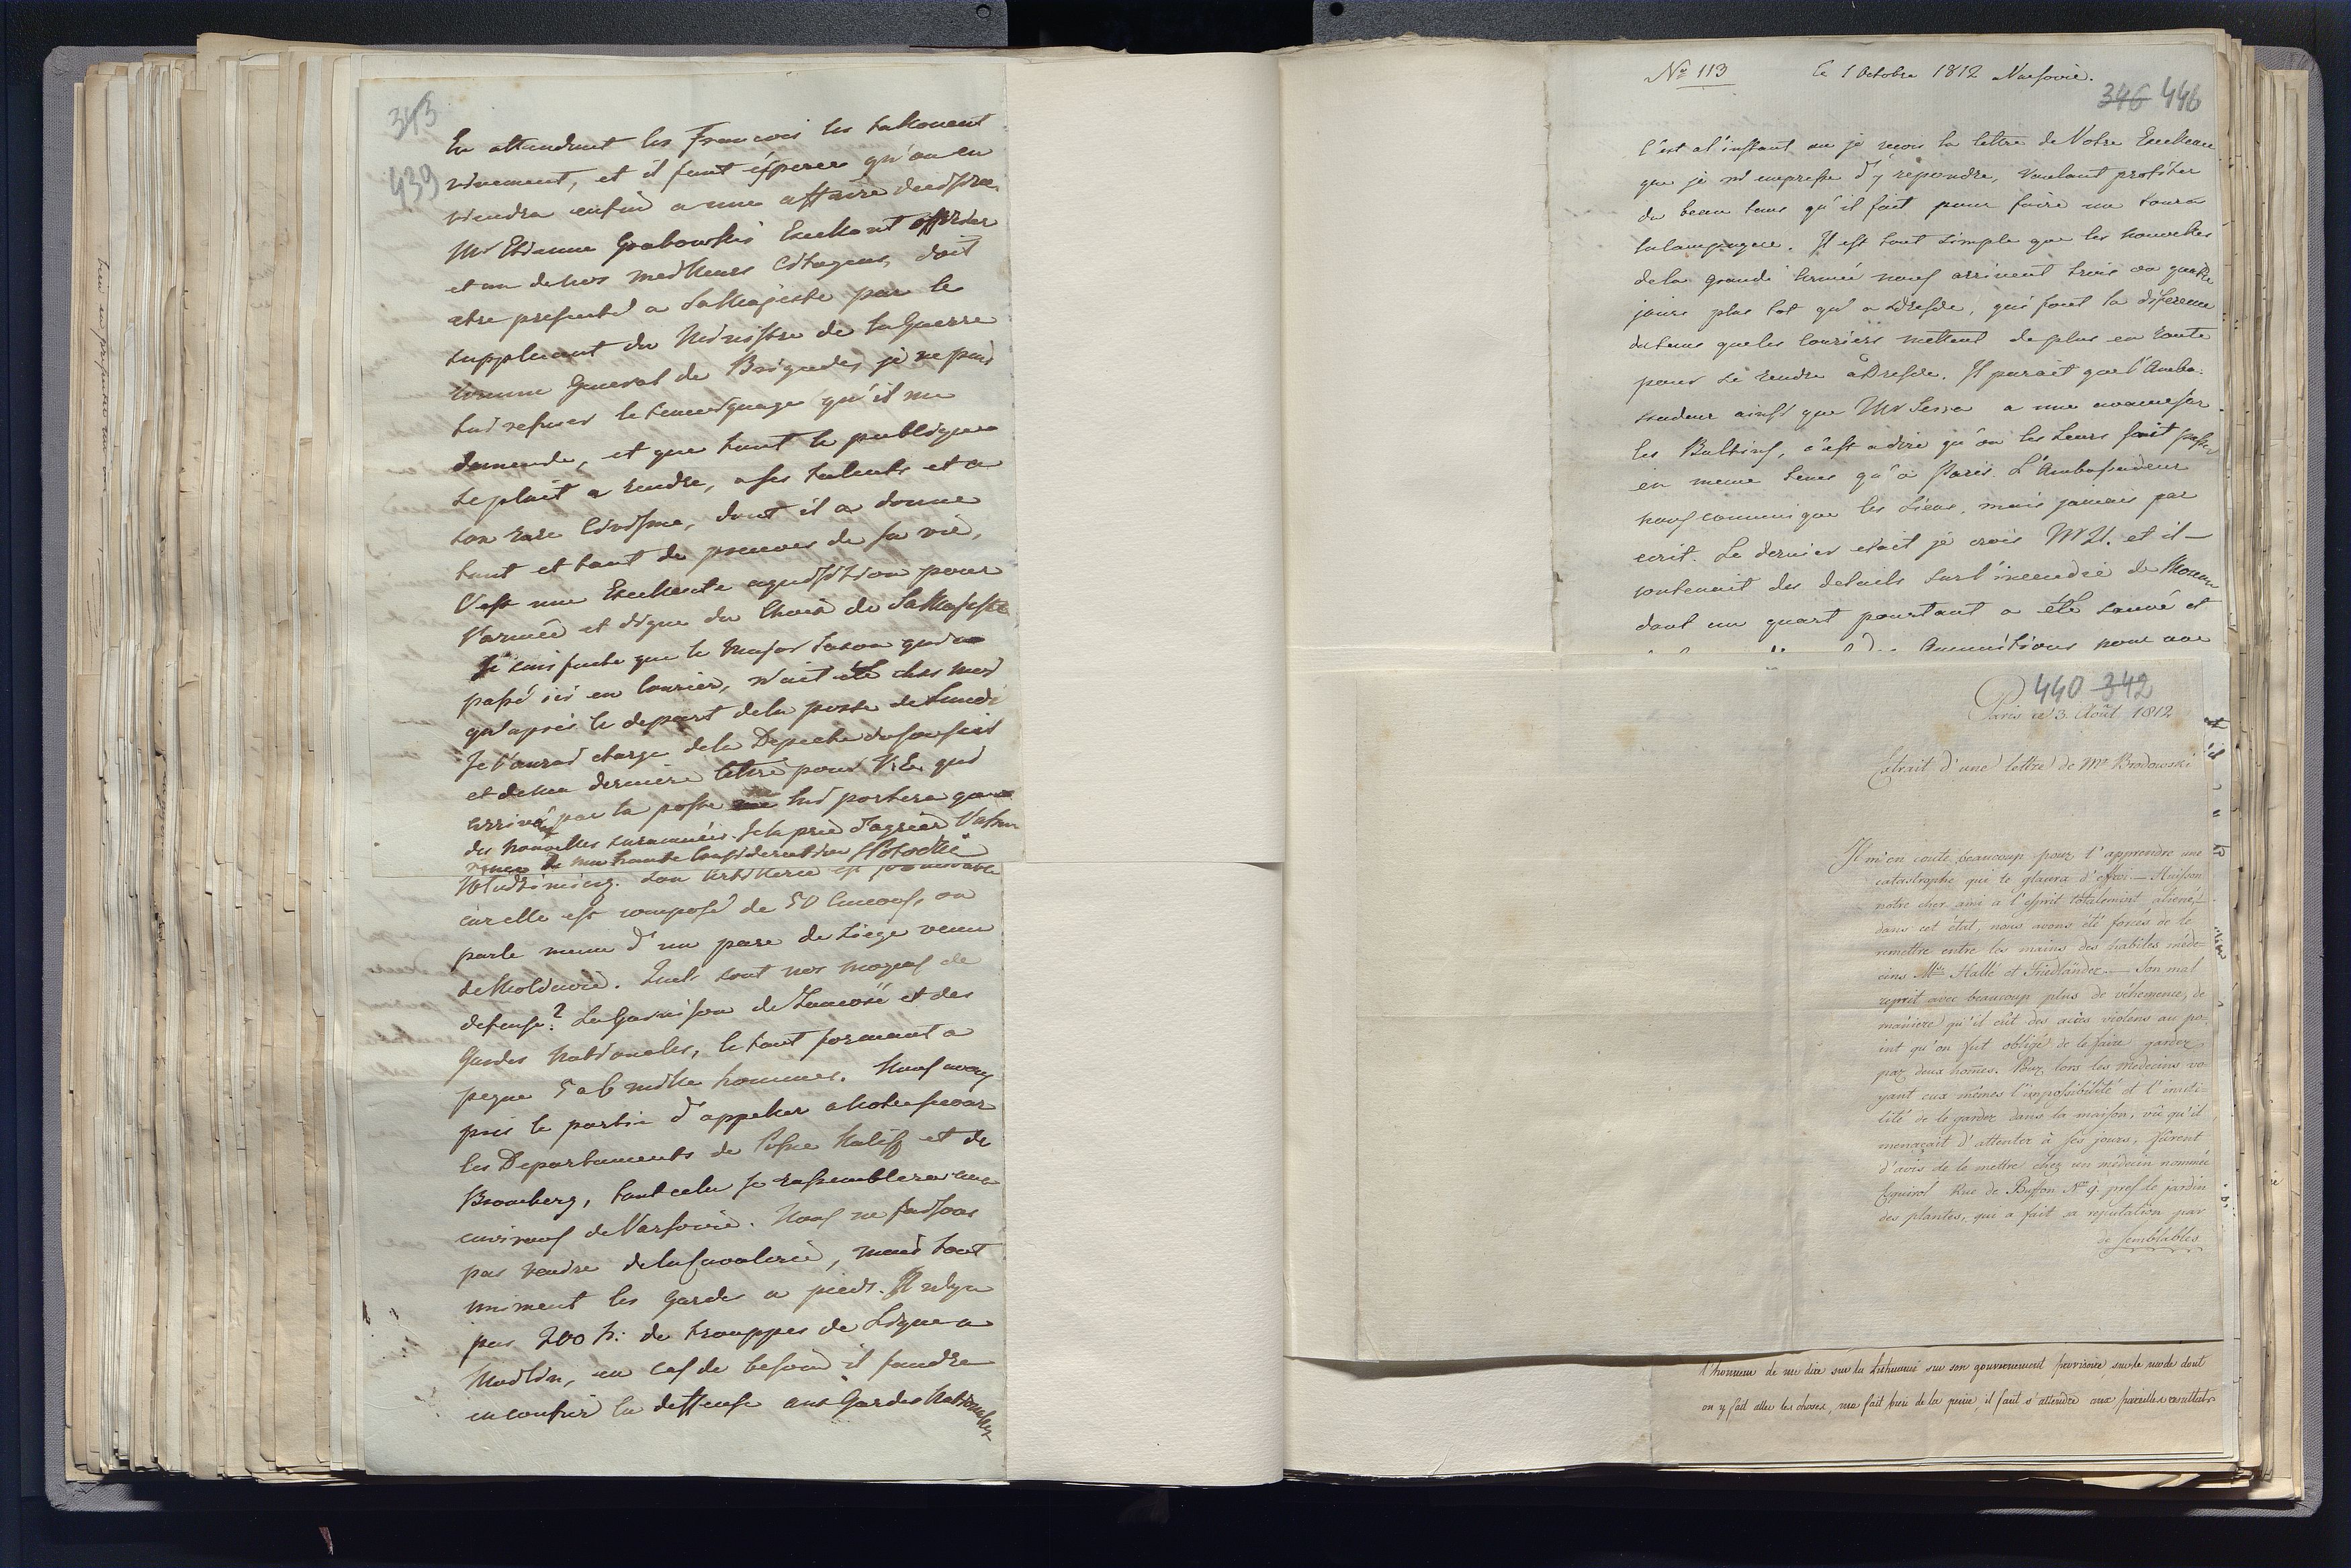 343
439
En attendant les Francois les talonent
vivement, et il faut ésperer qu'on en
viendra enfin a une affaire decisive.
Mr Etienne Grabowski Excellent officier
et un de nos meilleurs Citoyens, doit
etre presenté a Sa Majesté par le
suppleant du Ministre de la Guerre
comme General de Brigade, je ne puis
lui refuser le temoignage qu'il me
demande, et que tout le publique
se plait a rendre, a ses talents et a
son rare Civisme, dont il a donné
tant et tant de preuves de sa vie,
C'est une Excellente aquisition pour
l'armée et digne du Choix de Sa Majesté
Je suis faché que le Major Saxon qui a
passé ici en Courier, n'ait été chez moi
qu'après le depart de la poste de Lundi
Je l'aurai chargé de la Depeche du Conseil
et de ma derniere lettre pour V. E. qui
arrivé par la poste ne lui portera que
des nouvelles surannées. Je la prie d'agréer l'assu
rance de ma haute Consideration SPotocki
Wludzimierz. Son Artillerie est
car elle est composé de 50 Canons, on
parle meme d'un parc de Siege venu
de Moldavie. Quels sont nos moyens de
defense? La Garnison de Zamosc et des
Gardes Nationales, le tout formant a
peine 5 a 6 mille hommes. Nous avons
pris le partie d'appeller a Notre secours
les Departements de Posne Kalisz et de
Bromberg, tout cela se rassemblera aux
environs de Varsovie. Nous ne faisons
pas venire de la Cavalerie, mais tout
uniment les Gardes a pieds. Il n'y a
pas 200 h: de trouppes de Ligne a
Modlin, en cas de besoin il faudra
en confier la deffense aux Gardes Nationales
No 113 Le 1 Octobre 1812 Varsovie.
346 446
C'est a l'instant ou je reçois la lettre de Votre Excellence
que je m'empresse d'y repondre, voulant profiter
du beau tems qu'il fait pour faire un tour a
la campagne. Il est tout simple que les nouvelles
de la grande Armée nous arrivent trois ou quatre
jours plus tot qu'a Dresde, qui font la diference
du tems que les Couriers mettent de plus en route
pour se rendre à Dresde. Il parait que l'Amba-
ssadeur ainsi que Mr Serra a
les Bultins, c'est a dire qu'on les leurs fait passer
en meme tems qu'à Paris. L'Ambassadeur
nous communique les siens, mais jamais par
ecrit. Le dernier etait je crois 21. et il
contenait des details sur l'incendie de Moscou
dont un quart pourtant a été sauvé et
Ammunitions pour une
440 342
Paris ce 3. Août 1812
Extrait d'une lettre de Mr Brodowski
Il m'en coute beaucoup pour t'apprendre une
catastrophe qui te glacera d'effroi. — Anisson
notre cher ami a l'esprit totalement aliené,
dans cet état, nous avons été forcés de le
remettre entre les mains des habiles méde=
cins Mrs Hallé et Friedländer. — Son mal
reprit avec beaucoup plus de véhemence, de
manière qu'il eût des accès violens au po-
int qu'on fut obligé de le faire garder
par deux homes. Pour lors les medecins vo-
yant eux mêmes l'impossibilité et l'inuti=
lité de le garder dans la maison, vû qu'il
menaçait d'attenter à ses jours, fûrent
d'avis de le mettre chez un médecin nommé
Esquirol Rue de Buffon No 9. près le jardin
des plantes, qui a fait sa reputation par
de semblables
l'honneur de me dire sur la Lithuanie sur son gouvernement provisoire, sur le mode dont
on y fait aller les choses, m'a fait bien de la peine, il faut s'attendre aux pareilles resultats